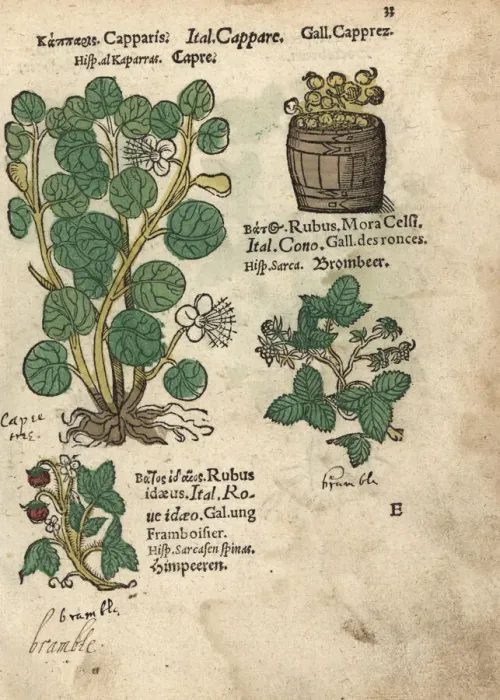 33
Κάππαρις. Capparis. Ital. Cappare. Gall. Capprez.
Hisp. al Kaparras. Capre.
Βάτος. Rubus. Mora Celsi.
Ital. Cono. Gall. des ronces.
Hisp. Sarca. Brombeer.
Capre
bramble
Βάτος ἰδαῖος. Rubus
idæus. Ital. Ro-
ue idæo. Gal. ung
Framboisier.
Hisp. Sarcasen spinas.
Himpeeren.
E
bramble.
bramble